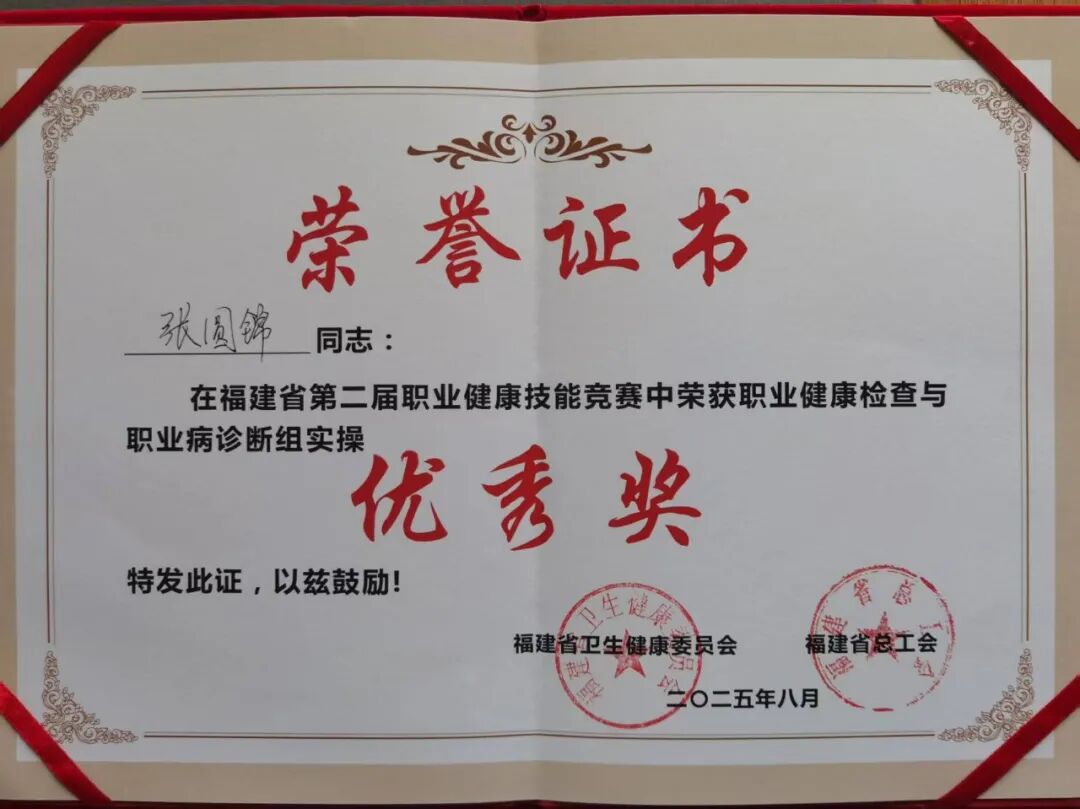 荣誉证书
张圆锦 同志：
在福建省第二届职业健康技能竞赛中荣获职业健康检查与
职业病诊断组实操
优秀奖
特发此证，以兹鼓励!
福建省卫生健康委员会 福建省总工会
二〇二五年八月
福建省卫生健康委员会
福建省总工会